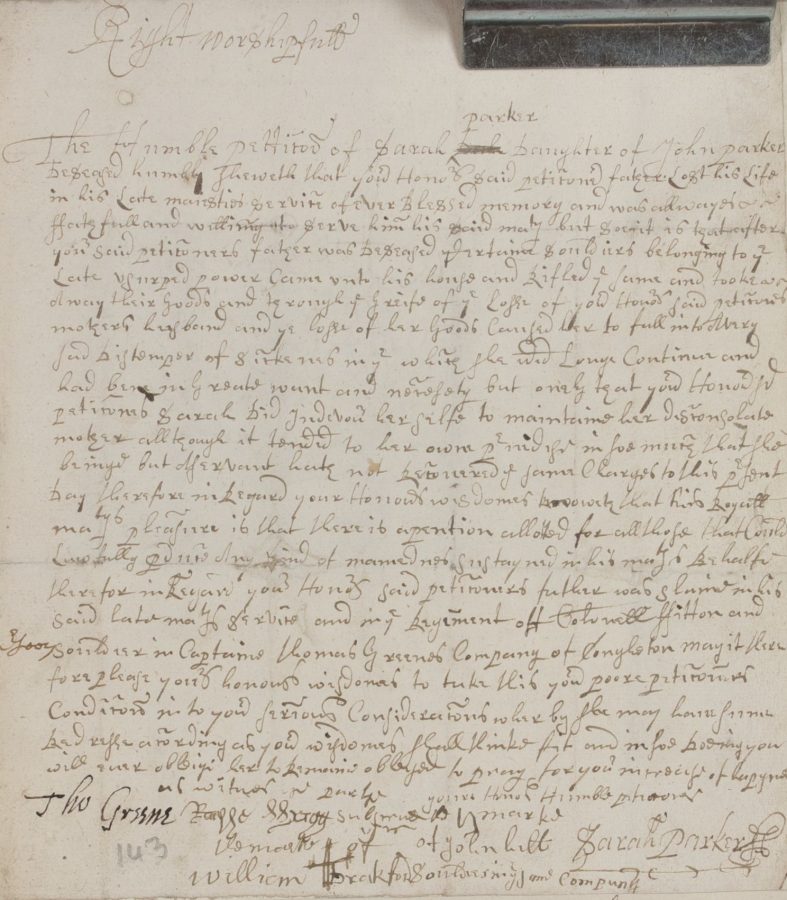 Right worshipfull
parker
The Humble petticon of Sarah daughter of John parker
deseased humbly sheweth that your Honors said peticoner father Lost his Life
in his Late maiesties service of ever Blessed memory and was allwayes
ffaithfull and willing to serve him his said maty but soe it is that after
your said peticoners father was deseased Certaine souldiers belonging to ye
Late vsurped power Came vnto his house and Rifled ye same and tooke
Away their Goods and through ye Greife of ye Losse of your Honors said peticoners
mothers husband and ye losse of her Goods Caused her to fall into A very
sad distemper of sickenes in ye which she did Longe Continue and
had bene in Greate want and nesesety but onely that your Honors sd
peticoner Sarah did Indevour her selfe to maintaine her disconsolate
mother allthough it tended to her owne preiudise in soe much that she
beinge but A servant hath not Recovered ye same Charges to this present
day therefore in Regard your Honours wisdomes knoweth that his Royall
matys pleasure is that there is a pention alloted for all those that Could
Lawfully produce Any kind of mamednes sustayned in his matys Behalfe
therefor in Regard your Honors said peticoners father was slaine in his
said late matys service and in ye Regiment off Colonell ffitton and
souldier in Captaine Thomas Greenes Company of Congleton may it there
fore please youer honours wisdomes to take this your poore peticoners
Condicon in to your serious Consideracons wher by she may have some
Redresse acording as your wisdomes shall thinke fit and in soe doeing you
will ever obblige her to Remaine obliged to pray for your increase of hapynes
as witnes your Honors Humble peticoner
Tho Greene marke
of John Sarah Parker
William souldiers in ye same Company
143